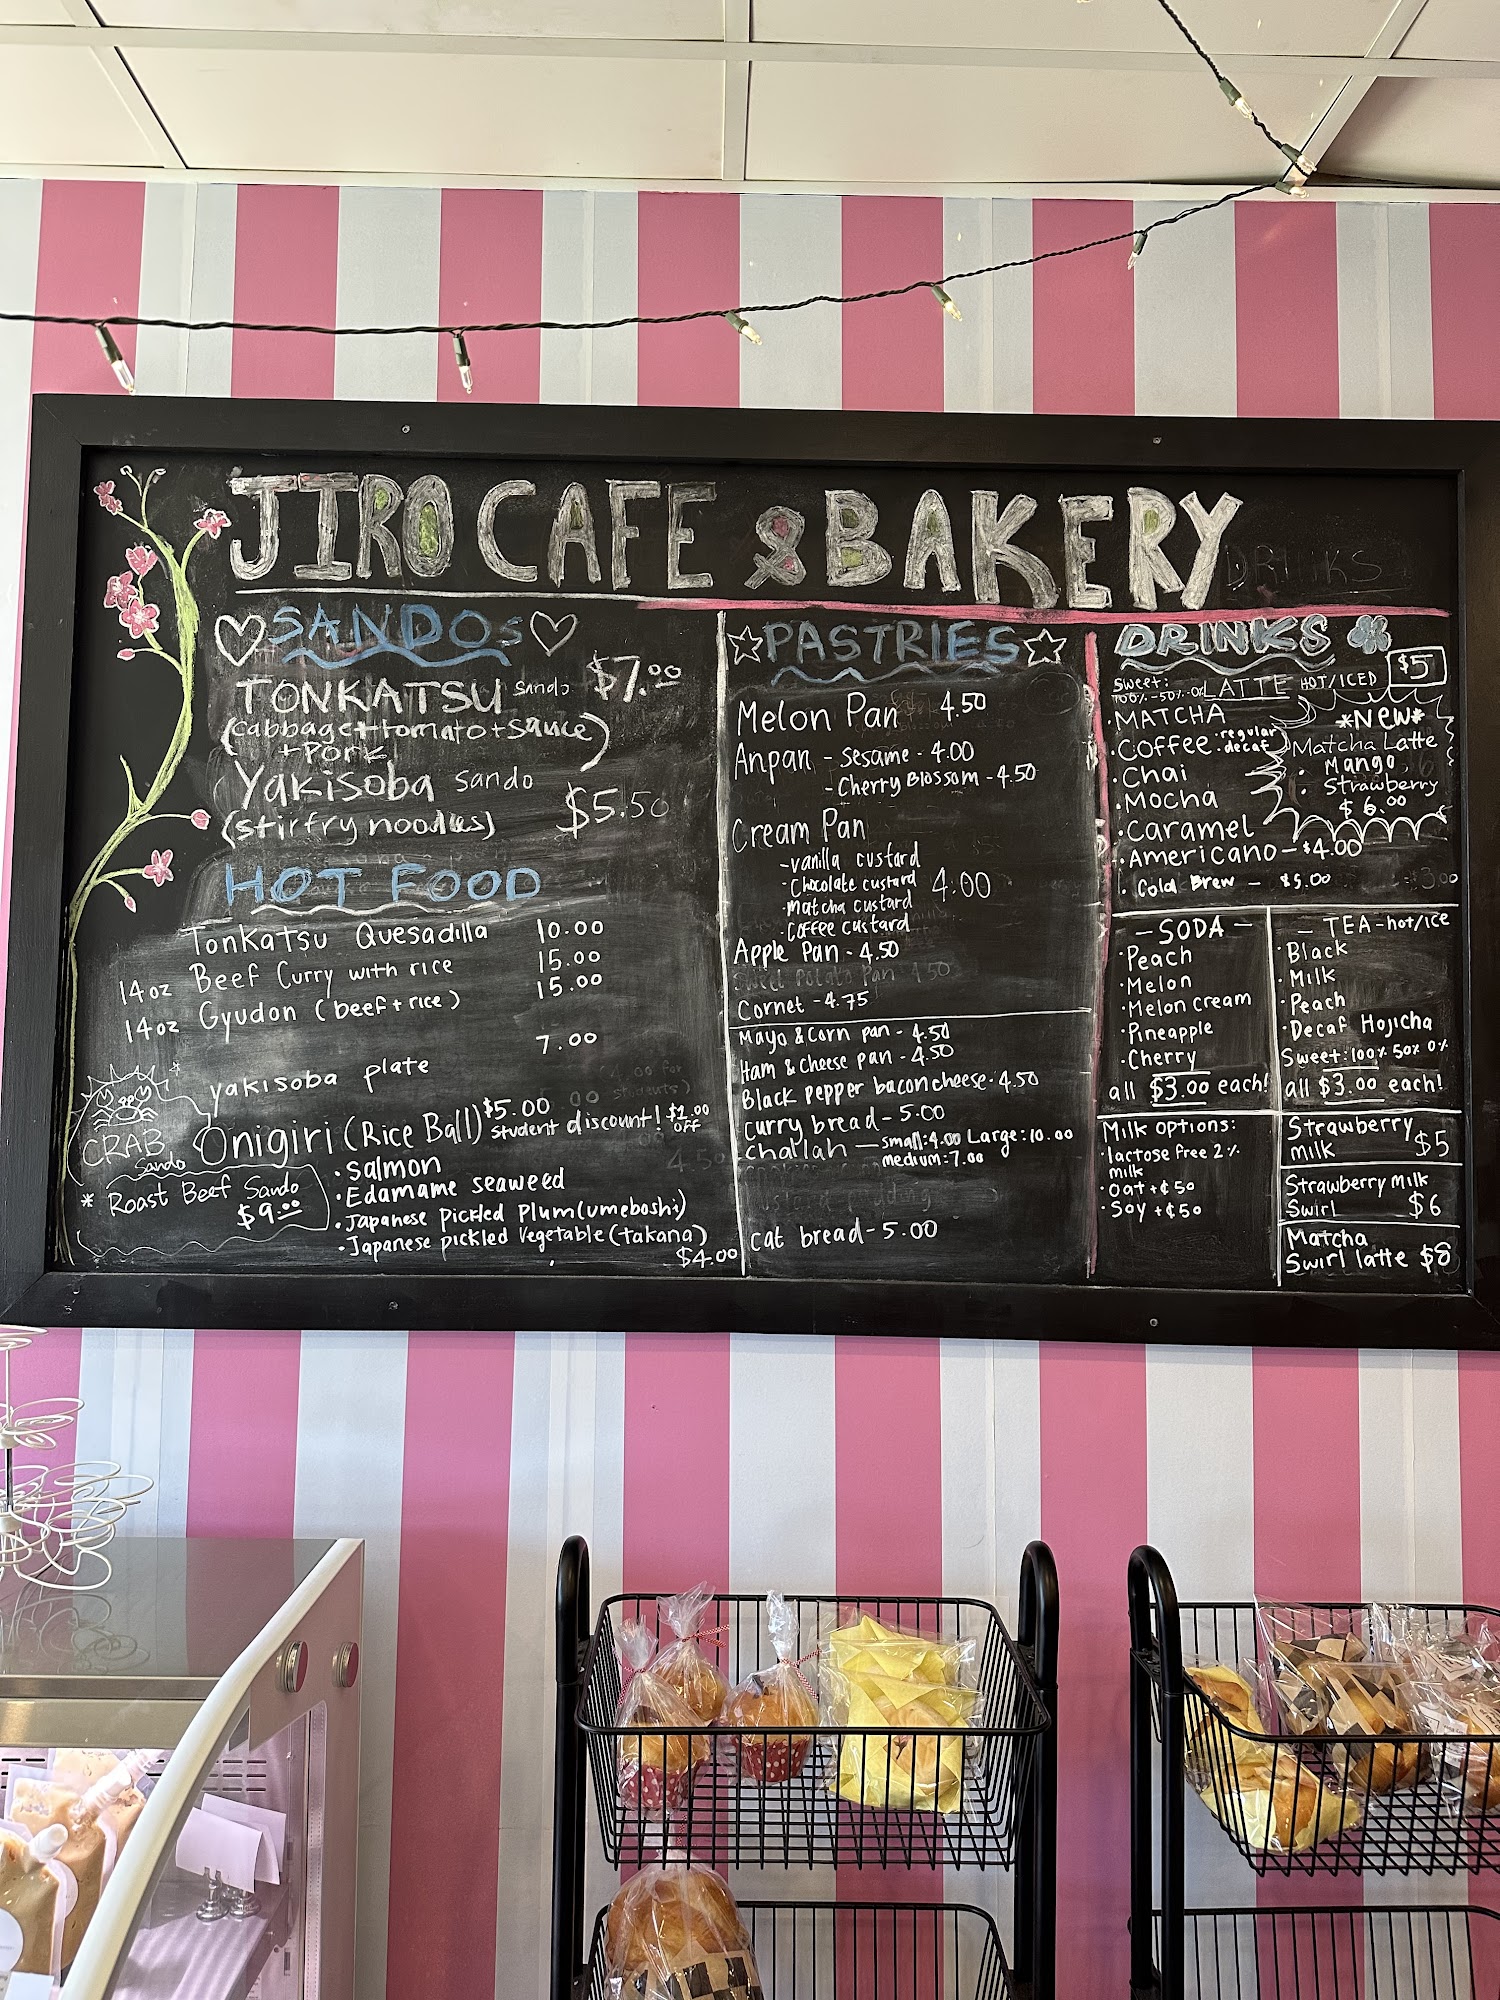 JIRO CAFE & BAKERY
DRINKS
SANDOS
TONKATSU sando $7.00
(cabbage+tomato+sauce)
+pork
Yakisoba sando
(stirfry noodles) $5.50
HOT FOOD
Tonkatsu Quesadilla 10.00
14oz Beef Curry with rice 15.00
14oz Gyudon (beef+rice) 15.00
yakisoba plate 7.00
CRAB
Sando
* Roast Beef Sando
$9.00
Onigiri (Rice Ball) $5.00
student discount! $1.00 OFF
•Salmon
•Edamame seaweed
•Japanese pickled Plum(umeboshi)
•Japanese pickled vegetable(takana)
$4.00
PASTRIES
Melon Pan 4.50
Anpan - Sesame - 4.00
- Cherry Blossom - 4.50
Cream Pan
-vanilla custard
•Chocolate custard 4.00
•Matcha custard
•Coffee custard
Apple Pan - 4.50
Sweet Potato Pan 4.50
Cornet - 4.75
Mayo & Corn pan - 4.50
Ham & Cheese pan - 4.50
Black pepper bacon cheese - 4.50
Curry bread - 5.00
Challah — small:4.00 Large:10.00
medium:7.00
cat bread - 5.00
DRINKS
Sweet:
100%-50%-0% LATTE HOT/ICED $5
•MATCHA
•Coffee •regular
•decaf
•Chai
•Mocha
•Caramel
•Americano - $4.00
• Cold Brew - $5.00
*New*
Matcha Latte
• Mango
• Strawberry
$6.00
- SODA -
•Peach
•Melon
•Melon cream
•Pineapple
•Cherry
all $3.00 each!
- TEA-hot/ice
•Black
•Milk
•Peach
•Decaf Hojicha
Sweet:100% 50% 0%
all $3.00 each!
Milk options:
•lactose free 2%
milk
•oat +¢50
•Soy +¢50
Strawberry
milk $5
Strawberry milk
Swirl $6
Matcha
Swirl latte $8